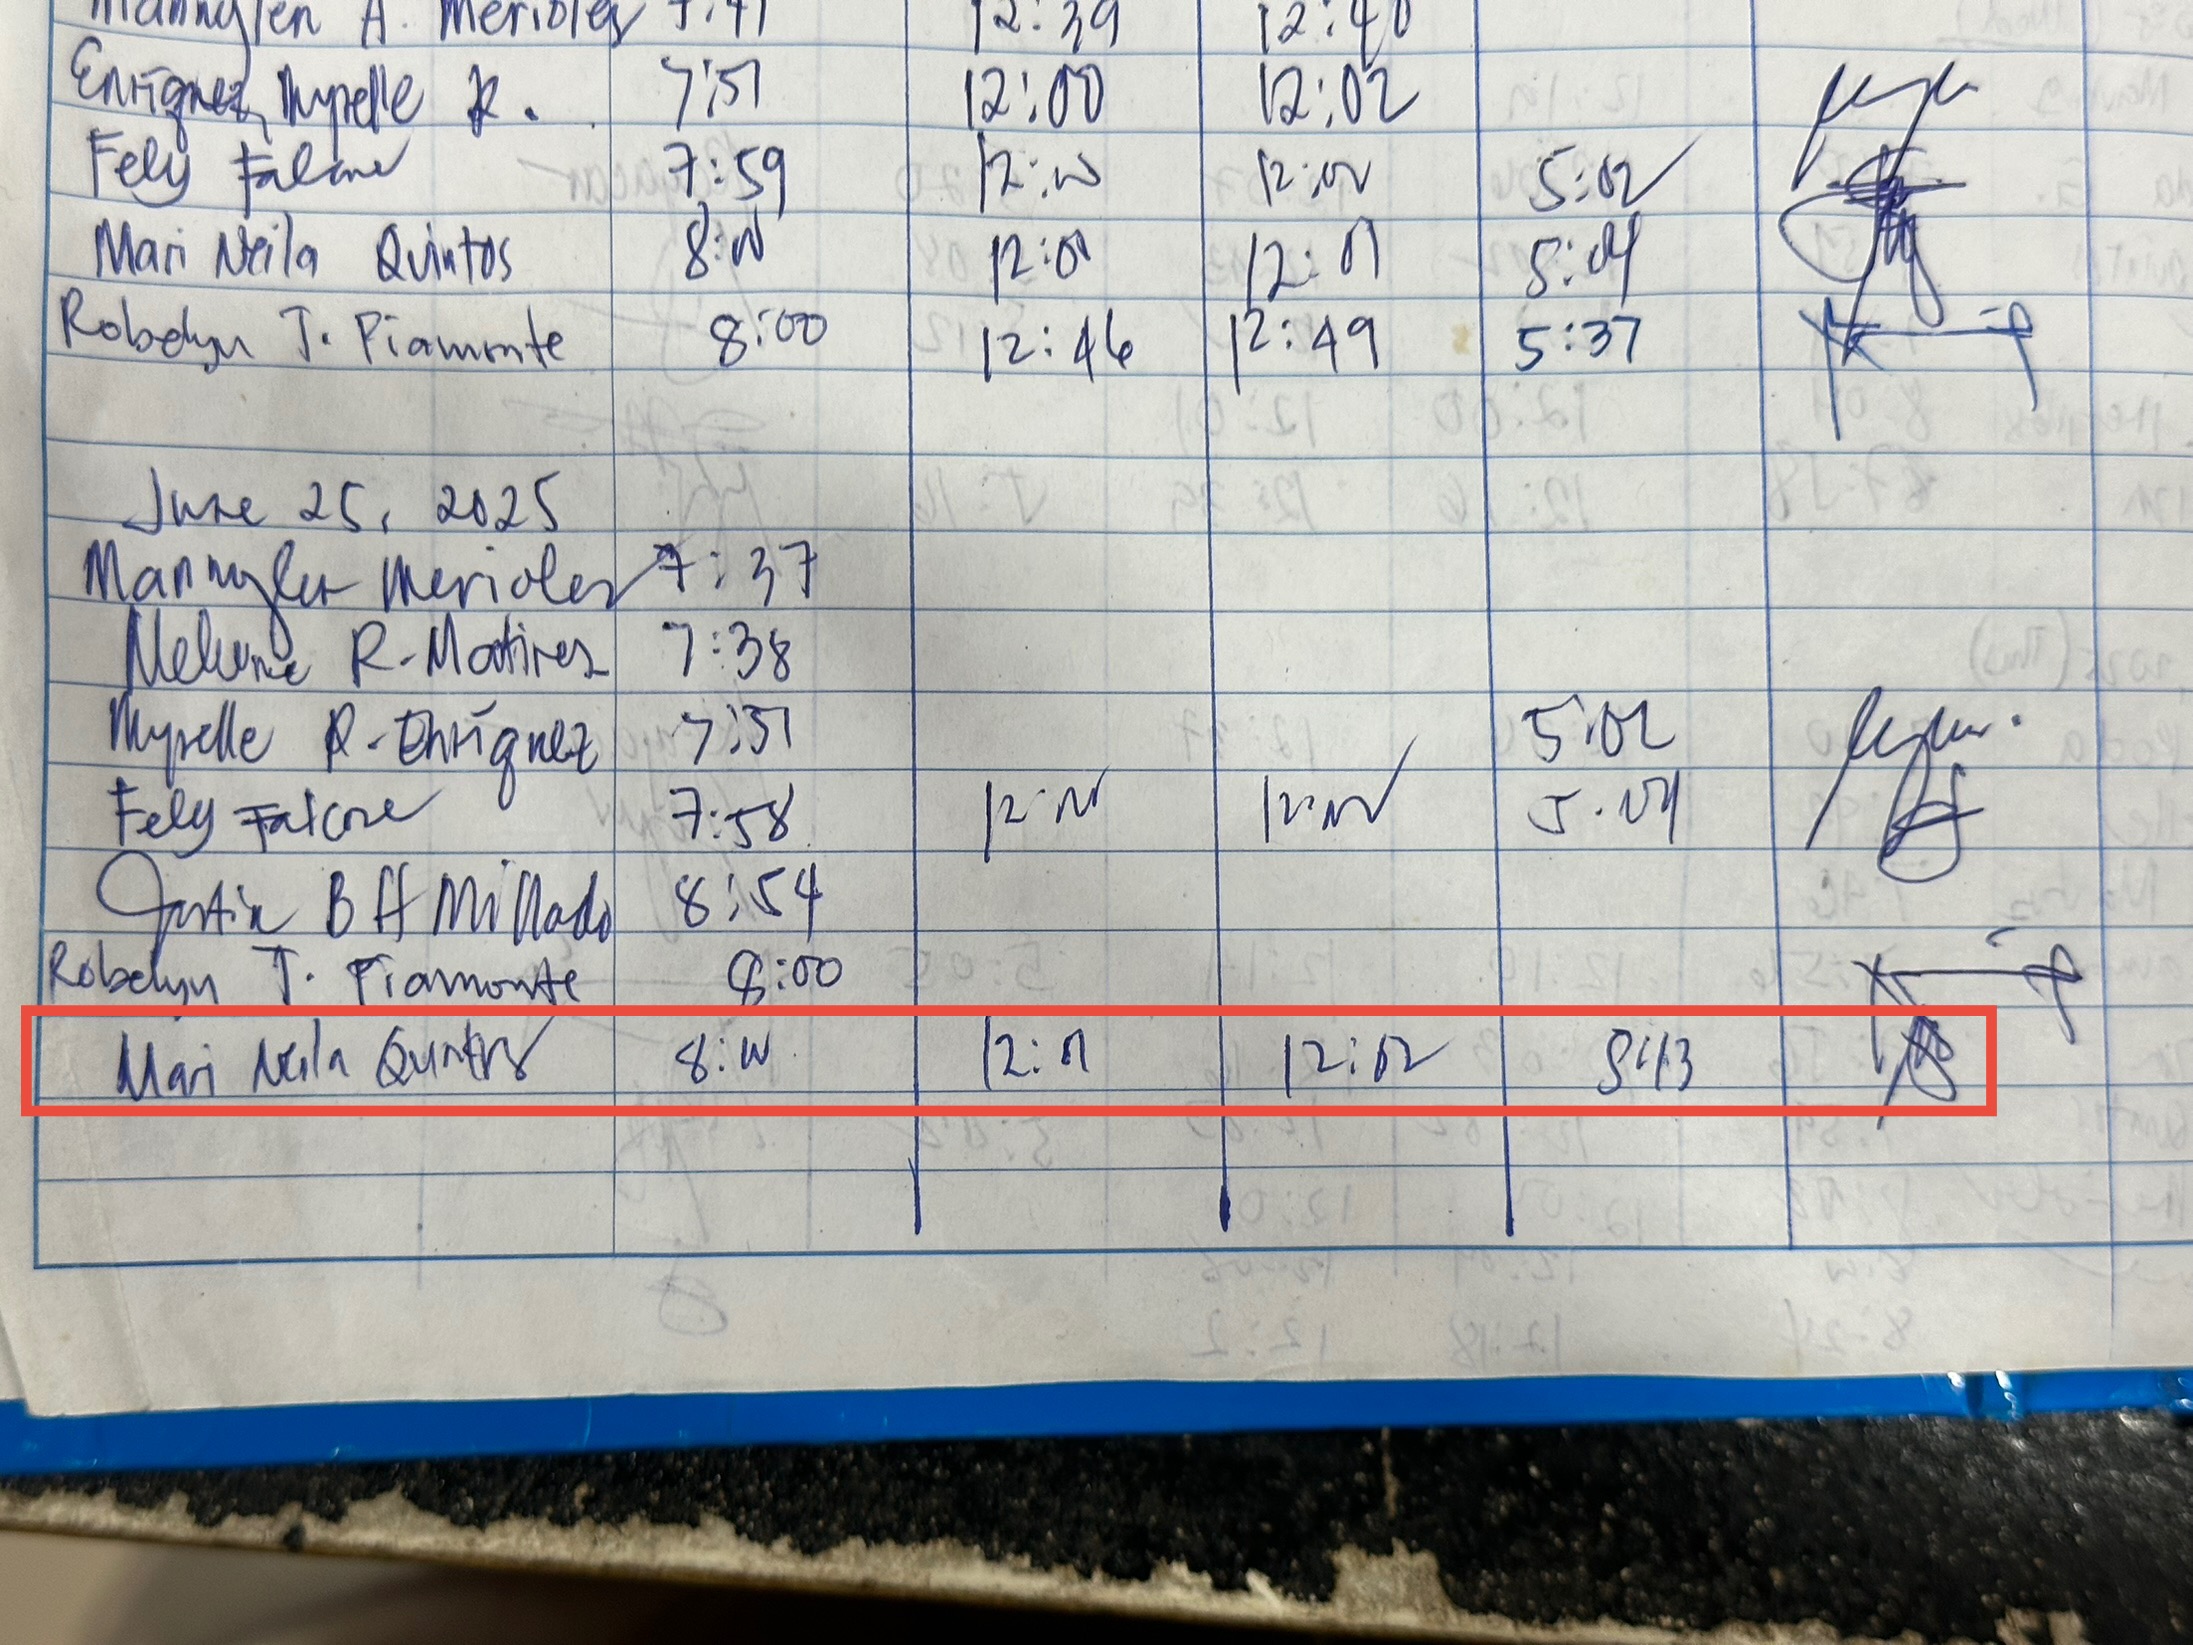 Mannylen A. Merioles 7:41 12:39 12:40
Enriquez, Myrelle R. 7:51 12:00 12:02
Fely Falcone 7:59 12:00 12:00 5:02
Mari Neila Quintos 8:00 12:00 12:01 5:04
Robelyn J. Piamonte 8:00 12:46 12:49 5:37
June 25, 2025
Mannylen Merioles 7:37
R. Matines 7:38
Myrelle R. Enriquez 7:51 5:02
Fely Falcone 7:58 12:00 12:00 5:04
Justin Millado 8:54
Robelyn J. Piamonte 8:00
Mari Neila Quintos 8:00 12:01 12:02 5:13